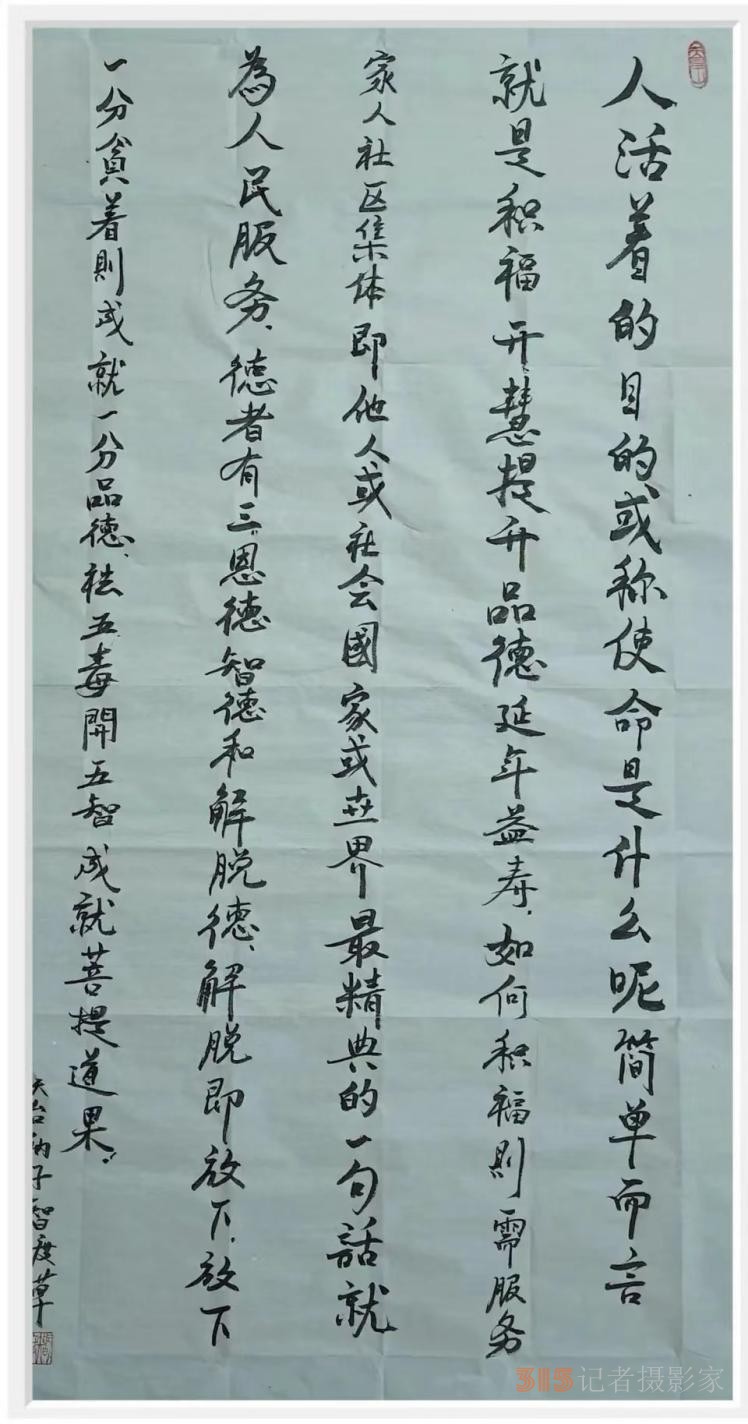 人活着的目的或称使命是什么呢简单而言
就是积福开慧提升品德延年益寿、如何积福则需服务
家人社区集体即他人或社会國家或世界最精典的一句話就
為人民服务、德者有三、恩德智德和解脱德、解脱即放下、放下
一分貪着則成就一分品德、祛五毒開五智成就菩提道果。
天台衲子智度草
315记者摄影家